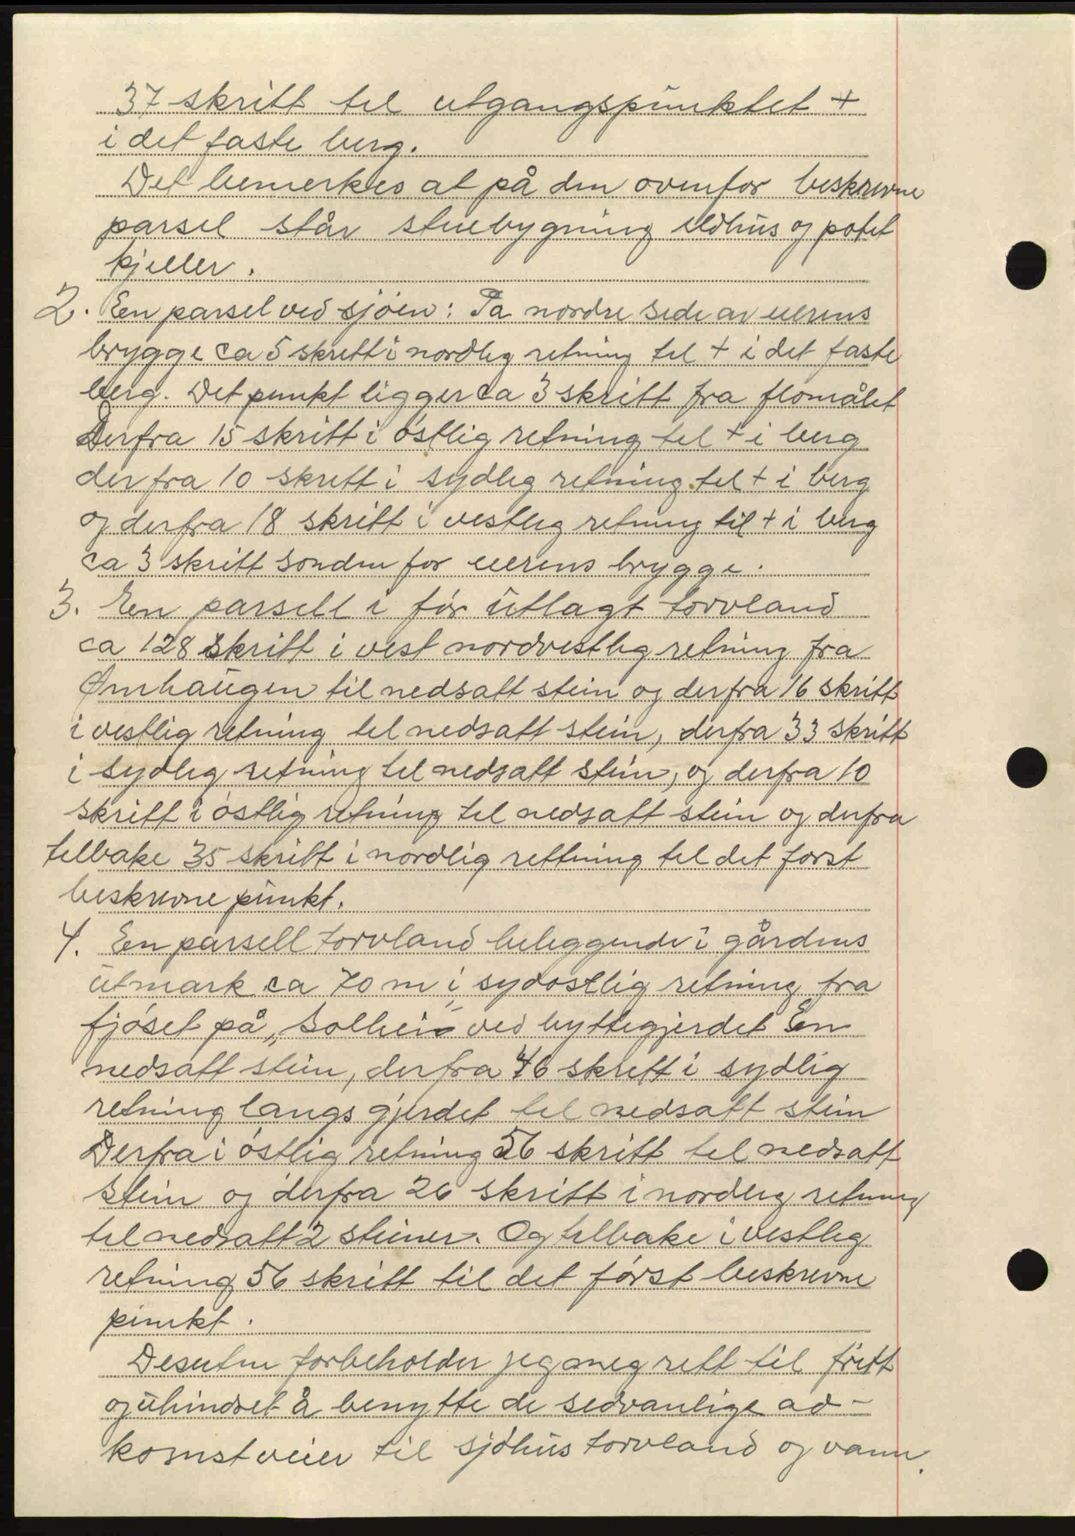 37 skritt til utgangspunktet +
i det faste berg.
Det bemerkes at på den ovenfor beskrevne
parsel står stuebygning ildhus og potet
kjeller.
2. En parsel ved sjøen: På nordre side av eierens
brygge ca 5 skritt i nordlig retning til + i det faste
berg. Det punkt ligger ca 3 skritt fra flomålet
Derfra 15 skritt i østlig retning til + i berg
derfra 10 skritt i sydlig retning til + i berg
og derfra 18 skritt i vestlig retning til + i berg
ca 3 skritt sonden for eierens brygge.
3. En parsell i før utlagt torvland
ca 128 skritt i vest nordvestlig retning fra
Ørnhaugen til nedsatt stein og derfra 16 skritt
i vestlig retning til nedsatt stein, derfra 33 skritt
i sydlig retning til nedsatt stein, og derfra 10
skritt i østlig retning til nedsatt stein og derfra
tilbake 35 skritt i nordlig rettning til det først
beskrevne punkt.
4. En parsell torvland beliggende i gårdens
utmark ca 70 m i sydostlig retning fra
fjøset på „Solheim" ved byttegjerdet En
nedsatt stein, derfra 46 skritt i sydlig
retning langs gjerdet til nedsatt stein
Derfra i østlig retning 56 skritt til nedsatt
stein og derfra 26 skritt i nordlig retning
til nedsatt 2 steiner. Og tilbake i vestlig
retning 56 skritt til det først beskrevne
punkt.
Desuten forbeholder jeg meg rett til fritt
og uhindret å benytte de sedvanlige ad-
komstveier til sjøhus torvland og vann.